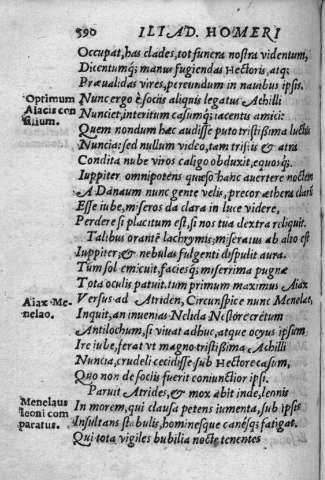 390 ILIAD. HOMERI
Occupat, has clades, tot funera nostra videntum,
Dicentumq; manus fugiendas Hectoris, atq;
Præualidas vires, pereundum in nauibus ipsis.
Optimum Aiacis con silium.
Nunc ergo è sociis aliquis legatus Achilli
Nunciet, interitum casumq; iacentis amici:
Quem nondum hæc audisse puto tristissima luctus
Nuncia: sed nullum video, tam tristis & atra
Condita nube viros caligo obduxit, equosq́.
Iuppiter omnipotens quæso hanc auertere noctem
A Danaum nunc gente velis, precor æthera clarū
Esse iube, miseros da clara in luce videre,
Perdere si placitum est, si nos tua dextra reliquit.
Talibus orantē lachrymis, miseratus ab alto est
Iuppiter, & nebulas fulgenti dispulit aura.
Tum sol emicuit, faciesq́; miserrima pugnæ
Tota oculis patuit. tum primum maximus Aiax
Aiax Me-
nelao.
Versus ad Atriden, Circunspice nunc Menelaë,
Inquit, an inuenias Nelida Nestore cretum
Antilochum, si viuat adhuc, atque ocyus ipsum
Ire iube, ferat vt magno tristissima Achilli
Nuncia, crudeli cecidisse sub Hectore casum,
Quo non de sociis fuerit coniunctior ipsi.
Paruit Atrides, & mox abit inde, leonis
Menelaus
leoni com
paratus.
In morem, qui clausa petens iumenta, sub ipsis
Insultans stabulis, hominesque canésq́; fatigat.
Qui tota vigiles bubilia nocte tenentes